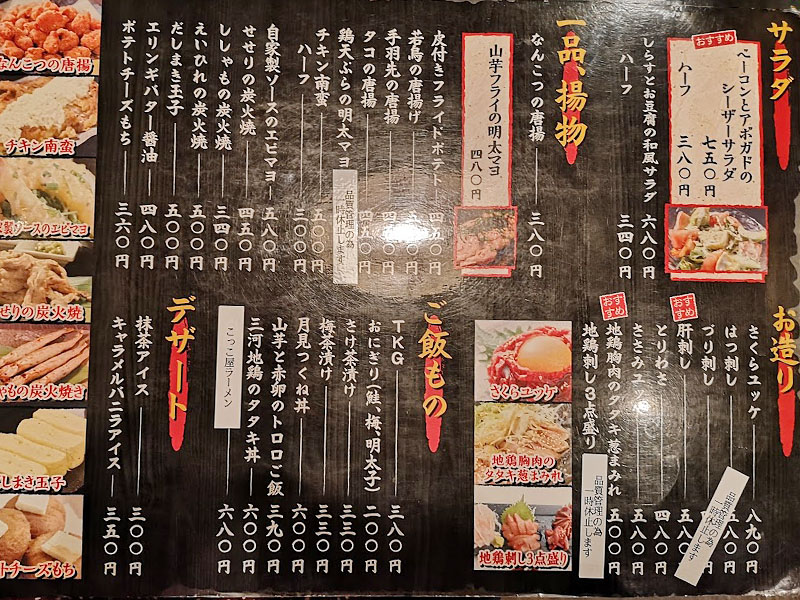 サラダ
おすすめ
ベーコンとアボガドの
シーザーサラダ
七五〇円
ハーフ 三八〇円
しらすとお豆腐の和風サラダ 六八〇円
ハーフ 三四〇円
一品、揚物
なんこつの唐揚 三八〇円
山芋フライの明太マヨ
四八〇円
皮付きフライドポテト 四五〇円
若鳥の唐揚げ
手羽先の唐揚
タコの唐揚
鶏天ぷらの明太マヨ
品質管理の為
一時休止します。
チキン南蛮 五五〇円
ハーフ 三〇〇円
自家製ソースのエビマヨ 五八〇円
せせりの炭火焼 四五〇円
ししゃもの炭火焼 三四〇円
えいひれの炭火焼 五〇〇円
だしまき玉子 五〇〇円
エリンギバター醤油 四八〇円
ポテトチーズもち 三六〇円
なんこつの唐揚
チキン南蛮
製ソースのエビマヨ
せりの炭火焼
ゃもの炭火焼き
しまき玉子
トチーズもち
お造り
さくらユッケ 八九〇円
はつ刺し
づり刺し
おすすめ
肝刺し
とりわさ 四八〇円
ささみユ
おすすめ
地鶏胸肉のタタキ葱まみれ 五〇〇円
地鶏刺し3点盛り
品質管理の為
一時休止します
品質管理の為
一時休止します。
さくらユッケ
地鶏胸肉の
タタキ葱まみれ
地鶏刺し3点盛り
ご飯もの
TKG 三八〇円
おにぎり(鮭、梅、明太子) 二〇〇円
さけ茶漬け 三三〇円
梅茶漬け 三三〇円
月見つくね丼 六〇〇円
山芋と赤卵のトロロご飯 三九〇円
三河地鶏のタタキ丼 六〇〇円
こっこ屋ラーメン 六八〇円
デザート
抹茶アイス 三〇〇円
キャラメルバニラアイス 三五〇円